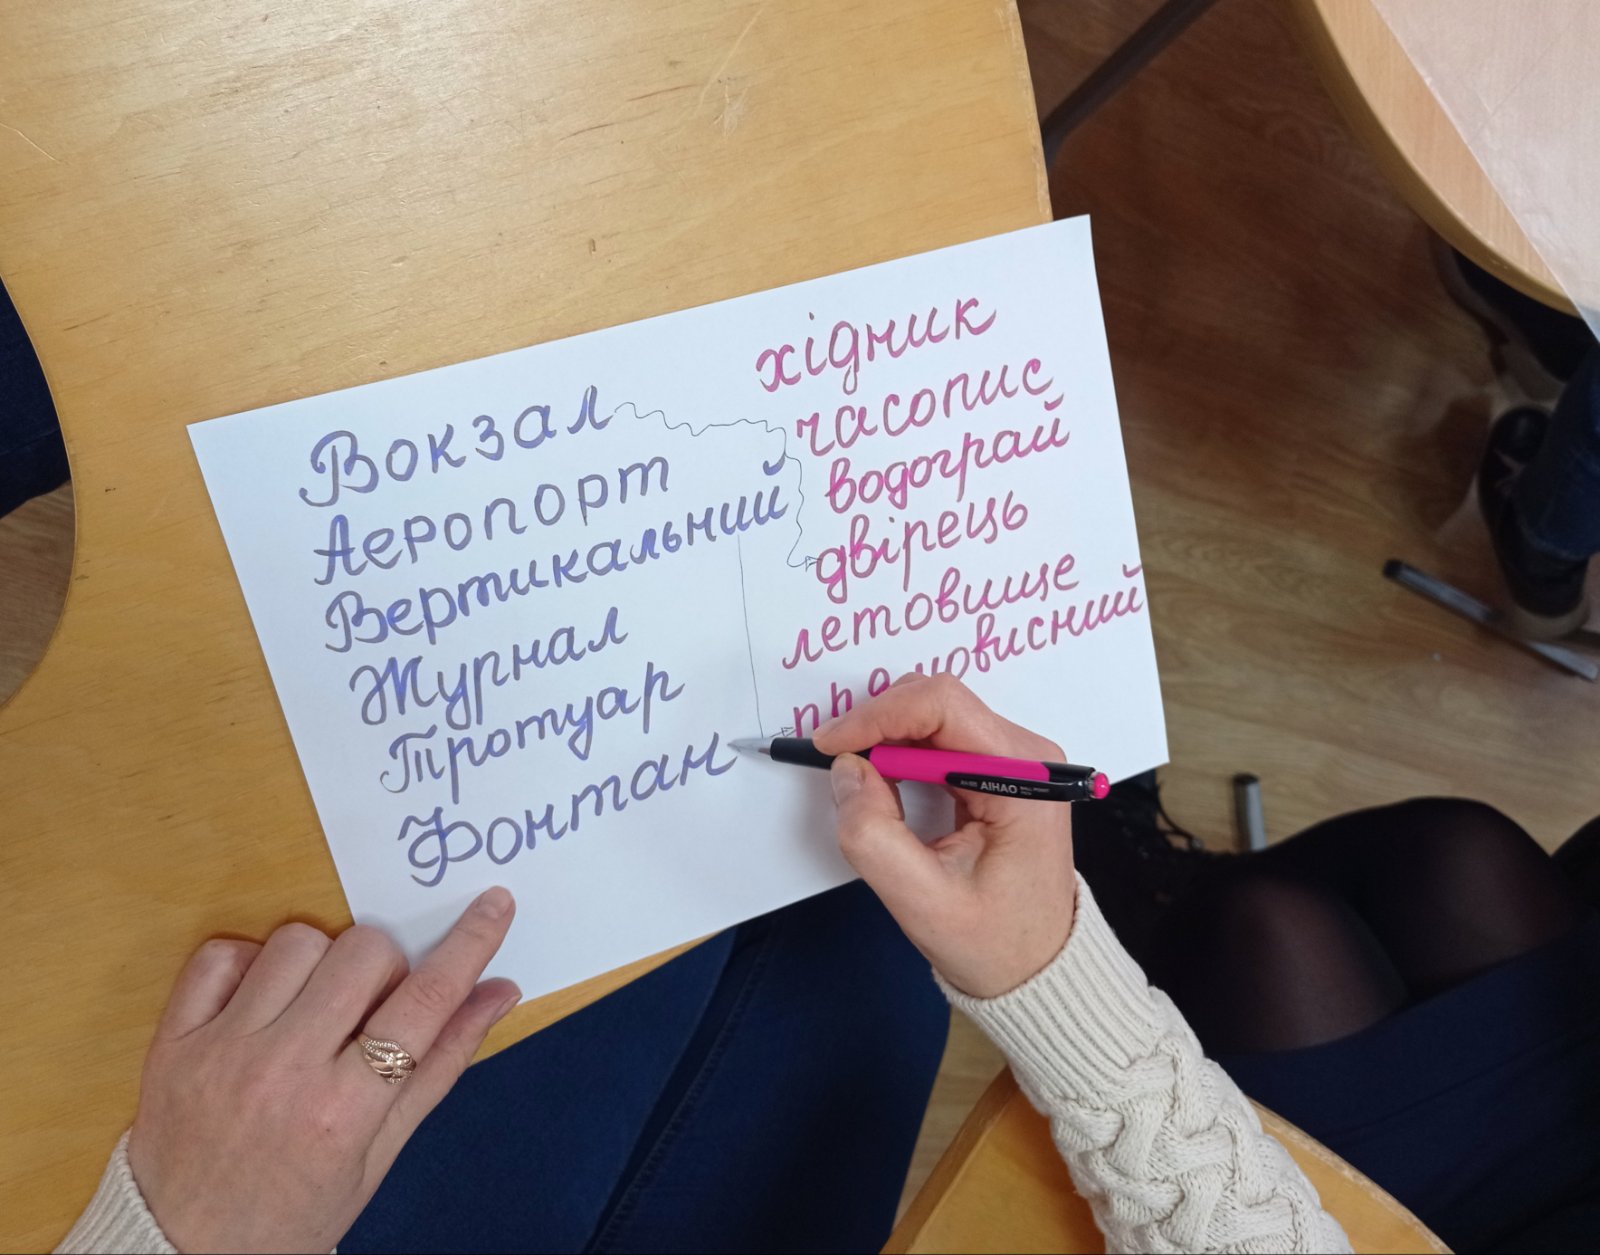 Вокзал
Аеропорт
Вертикальний
Журнал
Тротуар
Фонтан
хідник
часопис
водограй
двірець
летовище
AIHAO